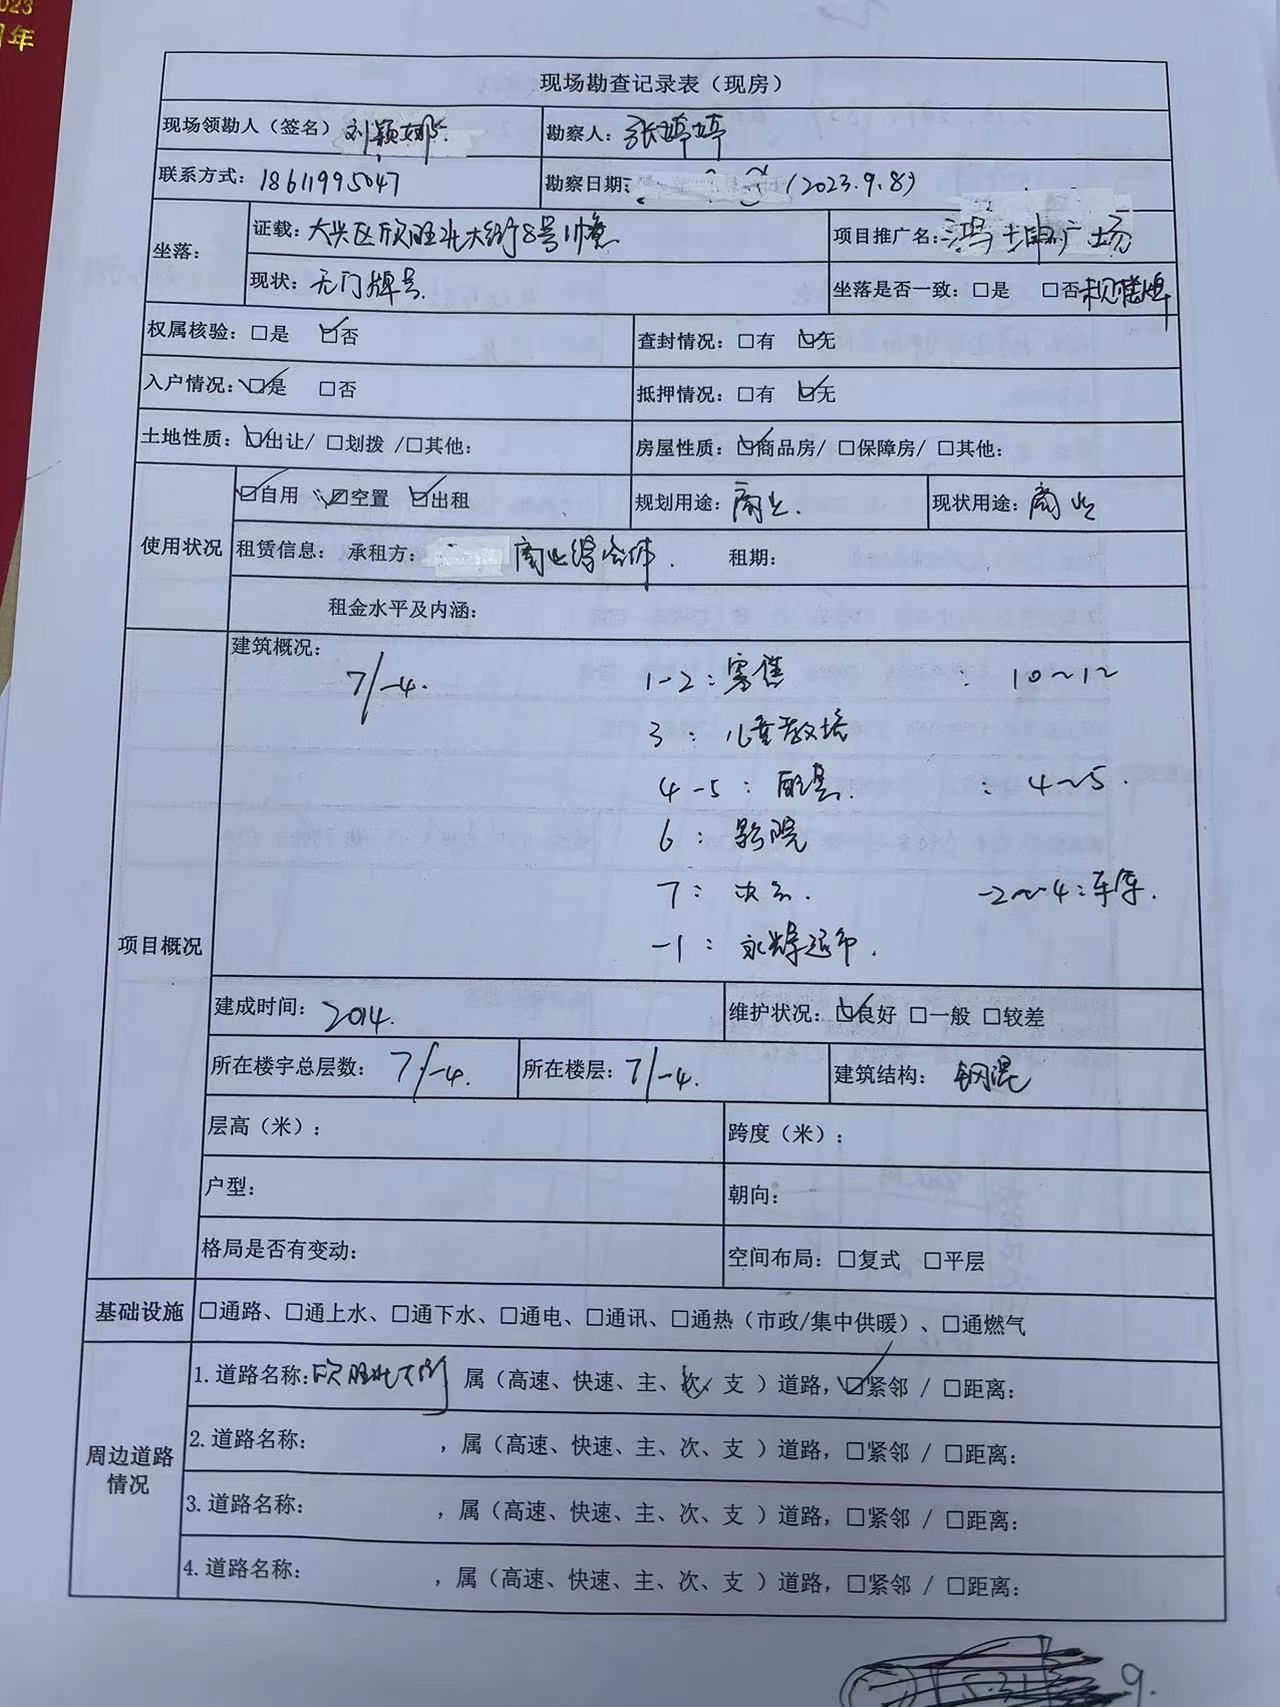 023
年
现场勘查记录表（现房）
现场领勘人（签名） 刘颖娜 勘察人：张婷婷
联系方式：18611995047 勘察日期： （2023.9.8）
坐落： 证载：大兴区欣旺北大街8号1幢 项目推广名：鸿坤广场
现状：无门牌号 坐落是否一致：□是 □否
权属核验：□是 ☑否 查封情况：□有 ☑无
入户情况：☑是 □否 抵押情况：□有 ☑无
土地性质：☑出让/ □划拨 /□其他： 房屋性质：☑商品房/ □保障房/ □其他：
使用状况 ☑自用 ☑空置 ☑出租 规划用途：商业. 现状用途：商业
租赁信息： 承租方： 商业综合体. 租期：
租金水平及内涵：
项目概况 建筑概况：
7/-4. 1-2：零售 ： 10~12
3：儿童教培
4-5：配套. ： 4~5.
6：影院
7：办公. -2~-4：车库.
-1：永辉超市.
建成时间：2014. 维护状况：☑良好 □一般 □较差
所在楼宇总层数：7/-4. 所在楼层：7/-4. 建筑结构：钢混
层高（米）： 跨度（米）：
户型： 朝向：
格局是否有变动： 空间布局：□复式 □平层
基础设施 □通路、□通上水、□通下水、□通电、□通讯、□通热（市政/集中供暖）、□通燃气
周边道路情况 1.道路名称：欣旺北大街 属（高速、快速、主、次、支 ）道路，☑紧邻 / □距离：
2.道路名称： ，属（高速、快速、主、次、支 ）道路，□紧邻 / □距离：
3.道路名称： ，属（高速、快速、主、次、支 ）道路，□紧邻 / □距离：
4.道路名称： ，属（高速、快速、主、次、支 ）道路，□紧邻 / □距离：
9.